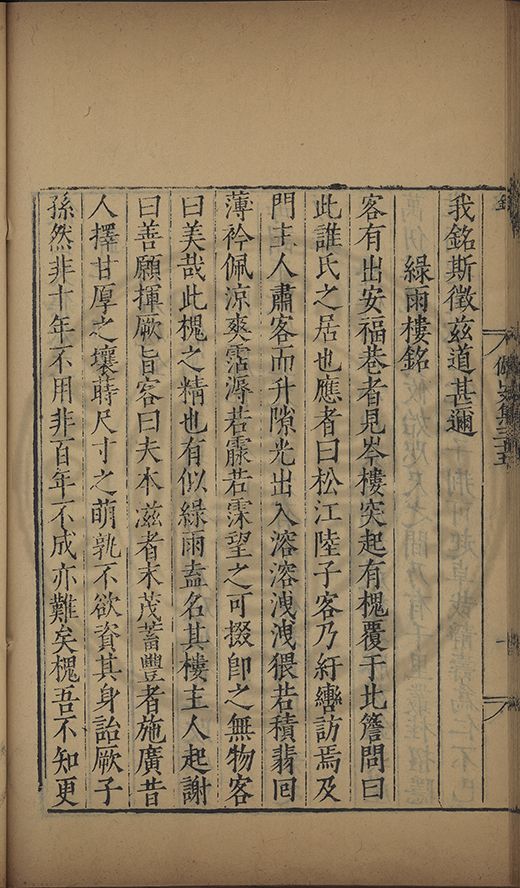 我銘斯徵茲道甚邇
綠雨樓銘
客有出安福巷者見岑樓突起有槐覆于北簷問曰
此誰氏之居也應者曰松江陸子客乃紆轡訪焉及
門主人肅客而升隙光出入溶溶洩洩猥若積翡回
薄衿佩涼爽霑溽若霢若霂望之可掇即之無物客
曰美哉此槐之精也有似綠雨盍名其樓主人起謝
曰善願揮厥旨客曰夫本滋者末茂蓄豐者施廣昔
人擇甘厚之壤蒔尺寸之萌孰不欲資其身詒厥子
孫然非十年不用非百年不成亦難矣槐吾不知更